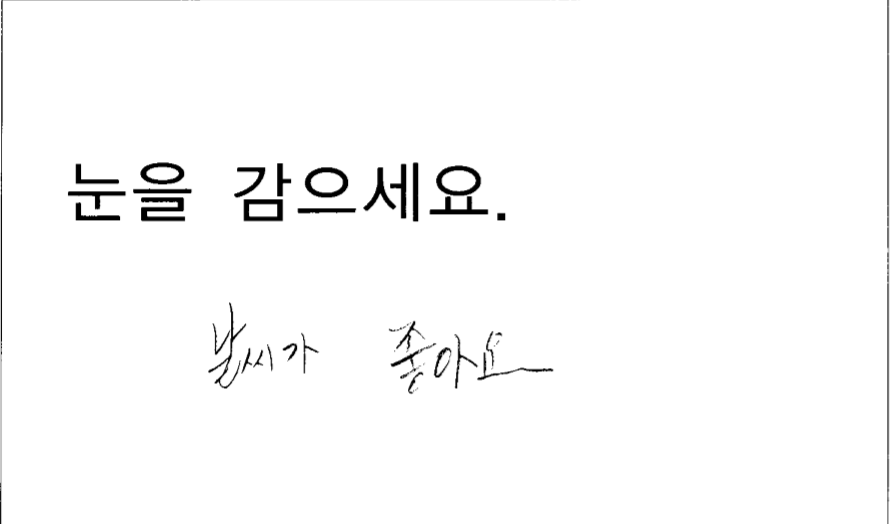 눈을 감으세요.
날씨가 좋아요